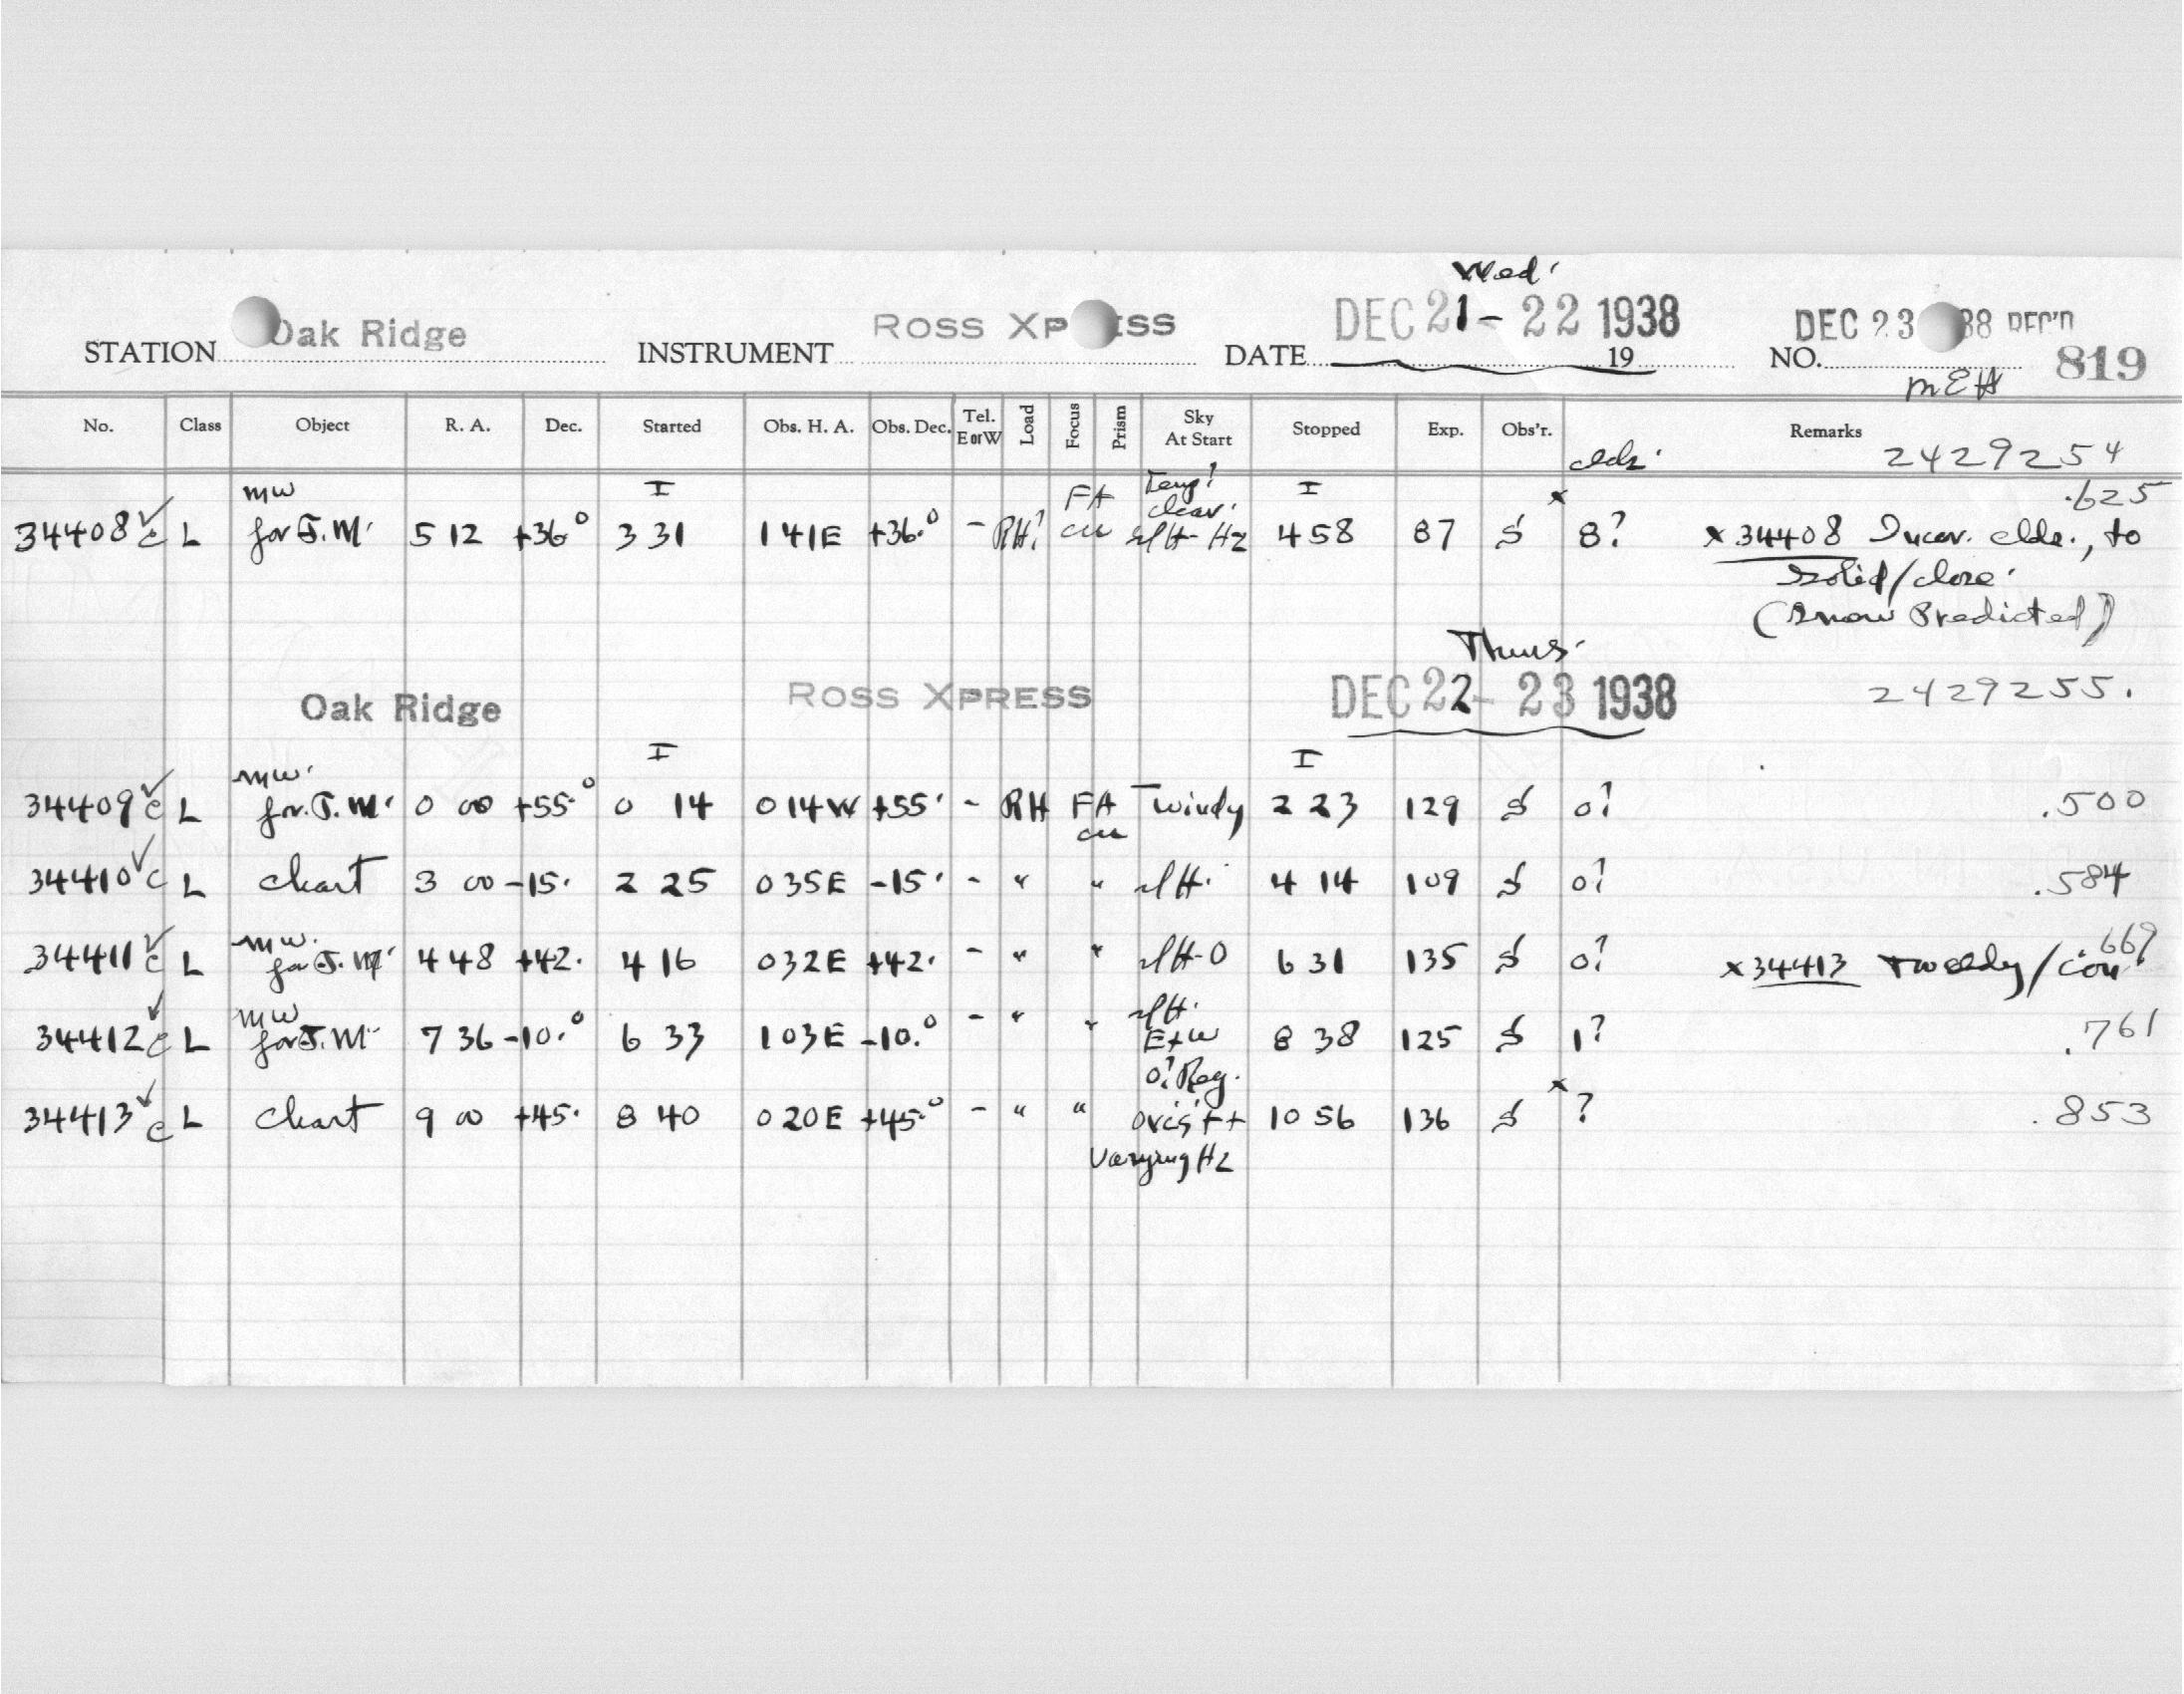 Wed.
STATION Oak Ridge INSTRUMENT ROSS XP ESS DATE DEC 21-22 1938 19 NO. DEC 23 38 REC'D 819
MEH
No. Class Object R. A. Dec. Started Obs. H. A. Obs. Dec. Tel. E or W Load Focus Prism Sky At Start Stopped Exp. Obs'r. clds. Remarks 2429254
mw I FA Temp! clear. I x .625
34408 c L for J.M. 5 12 +36° 3 31 1 41E +36.° - RH! cu Hz 4 58 87 S 8? x 34408 clds., to
Solid/close.
(Snow Predicted)
Thurs.
Oak Ridge ROSS XPRESS DEC 22-23 1938 2429255.
I I
mw.
34409 c L for J.M. 0 00 +55.° 0 14 0 14W +55. - RH FA windy 2 23 129 S 0? .500
cu
34410 c L chart 3 00 -15. 2 25 0 35E -15. - " " 4 14 109 S 0? .584
mw.
34411 c L for J.M. 4 48 +42. 4 16 0 32E +42. - " " 6 31 135 S 0? x 34413 .669
mw
34412 c L for J.M. 7 36 -10.° 6 33 1 03E -10.° - " " E+W 8 38 125 S 1? .761
0? Reg.
34413 c L chart 9 00 +45. 8 40 0 20E +45.° - " " 10 56 136 S x ? .853
Varying Hz